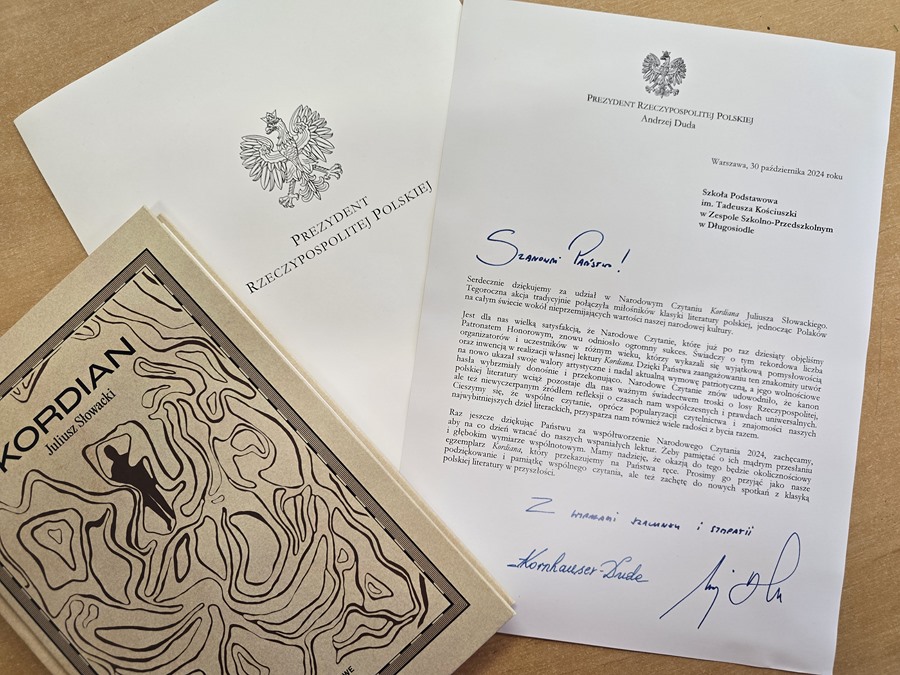 PREZYDENT
RZECZYPOSPOLITEJ POLSKIEJ
KORDIAN
Juliusz Słowacki
PREZYDENT RZECZYPOSPOLITEJ POLSKIEJ
Andrzej Duda
Warszawa, 30 października 2024 roku
Szkoła Podstawowa
im. Tadeusza Kościuszki
w Zespole Szkolno-Przedszkolnym
w Długosiodle
Szanowni Państwo!
Serdecznie dziękujemy za udział w Narodowym Czytaniu Kordiana Juliusza Słowackiego.
Tegoroczna akcja tradycyjnie połączyła miłośników klasyki literatury polskiej, jednocząc Polaków
na całym świecie wokół nieprzemijających wartości naszej narodowej kultury.
Jest dla nas wielką satysfakcją, że Narodowe Czytanie, które już po raz dziesiąty objęliśmy
Patronatem Honorowym, znowu odniosło ogromny sukces. Świadczy o tym rekordowa liczba
organizatorów i uczestników w różnym wieku, którzy wykazali się wyjątkową pomysłowością
oraz inwencją w realizacji własnej lektury Kordiana. Dzięki Państwa zaangażowaniu ten znakomity utwór
na nowo ukazał swoje walory artystyczne i nadal aktualną wymowę patriotyczną, a jego wolnościowe
hasła wybrzmiały donośnie i przekonująco. Narodowe Czytanie znów udowodniło, że kanon
polskiej literatury wciąż pozostaje dla nas ważnym świadectwem troski o losy Rzeczypospolitej,
ale też niewyczerpanym źródłem refleksji o czasach nam współczesnych i prawdach uniwersalnych.
Cieszymy się, że wspólne czytanie, oprócz popularyzacji czytelnictwa i znajomości naszych
najwybitniejszych dzieł literackich, przysparza nam również wiele radości z bycia razem.
Raz jeszcze dziękując Państwu za współtworzenie Narodowego Czytania 2024, zachęcamy,
aby na co dzień wracać do naszych wspaniałych lektur. Żeby pamiętać o ich mądrym przesłaniu
i głębokim wymiarze wspólnotowym. Mamy nadzieję, że okazją do tego będzie okolicznościowy
egzemplarz Kordiana, który przekazujemy na Państwa ręce. Prosimy go przyjąć jako nasze
podziękowanie i pamiątkę wspólnego czytania, ale też zachętę do nowych spotkań z klasyką
polskiej literatury w przyszłości.
Z wyrazami szacunku i sympatii
Kornhauser-Duda